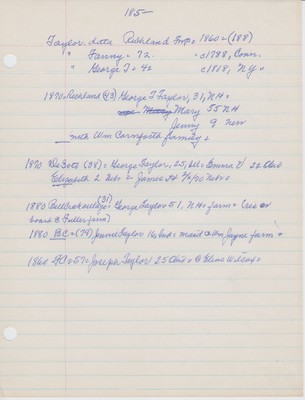 185-
Taylor data Richland Twp. 1860=(188)
" Fanny = 72. = c1788, Conn.
" George T = 42 c1818, N.Y.
1870=Richland (43) George T Taylor, 31, N.H=
Mary 55 N H
Jenny 9 Nev
with Wm Cornforth family.
1870 De Soto (38)= George Taylor, 25, Ill= Emma V 22 Ohio
Elizabeth 2 Nebr = James 24 4/12/70 Nebr=
1880 = George Taylor 51, N.H= farm= (res on
board C Fuller farm)
1880 BC=(79) Jennie Taylor 16, Ind= maid c Wm Jayne farm=
186 57= Joseph Taylor 25 Ohio= c Elias Wilcox=